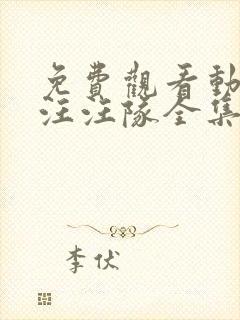 免費觀看動
汪汪隊全集
李伏